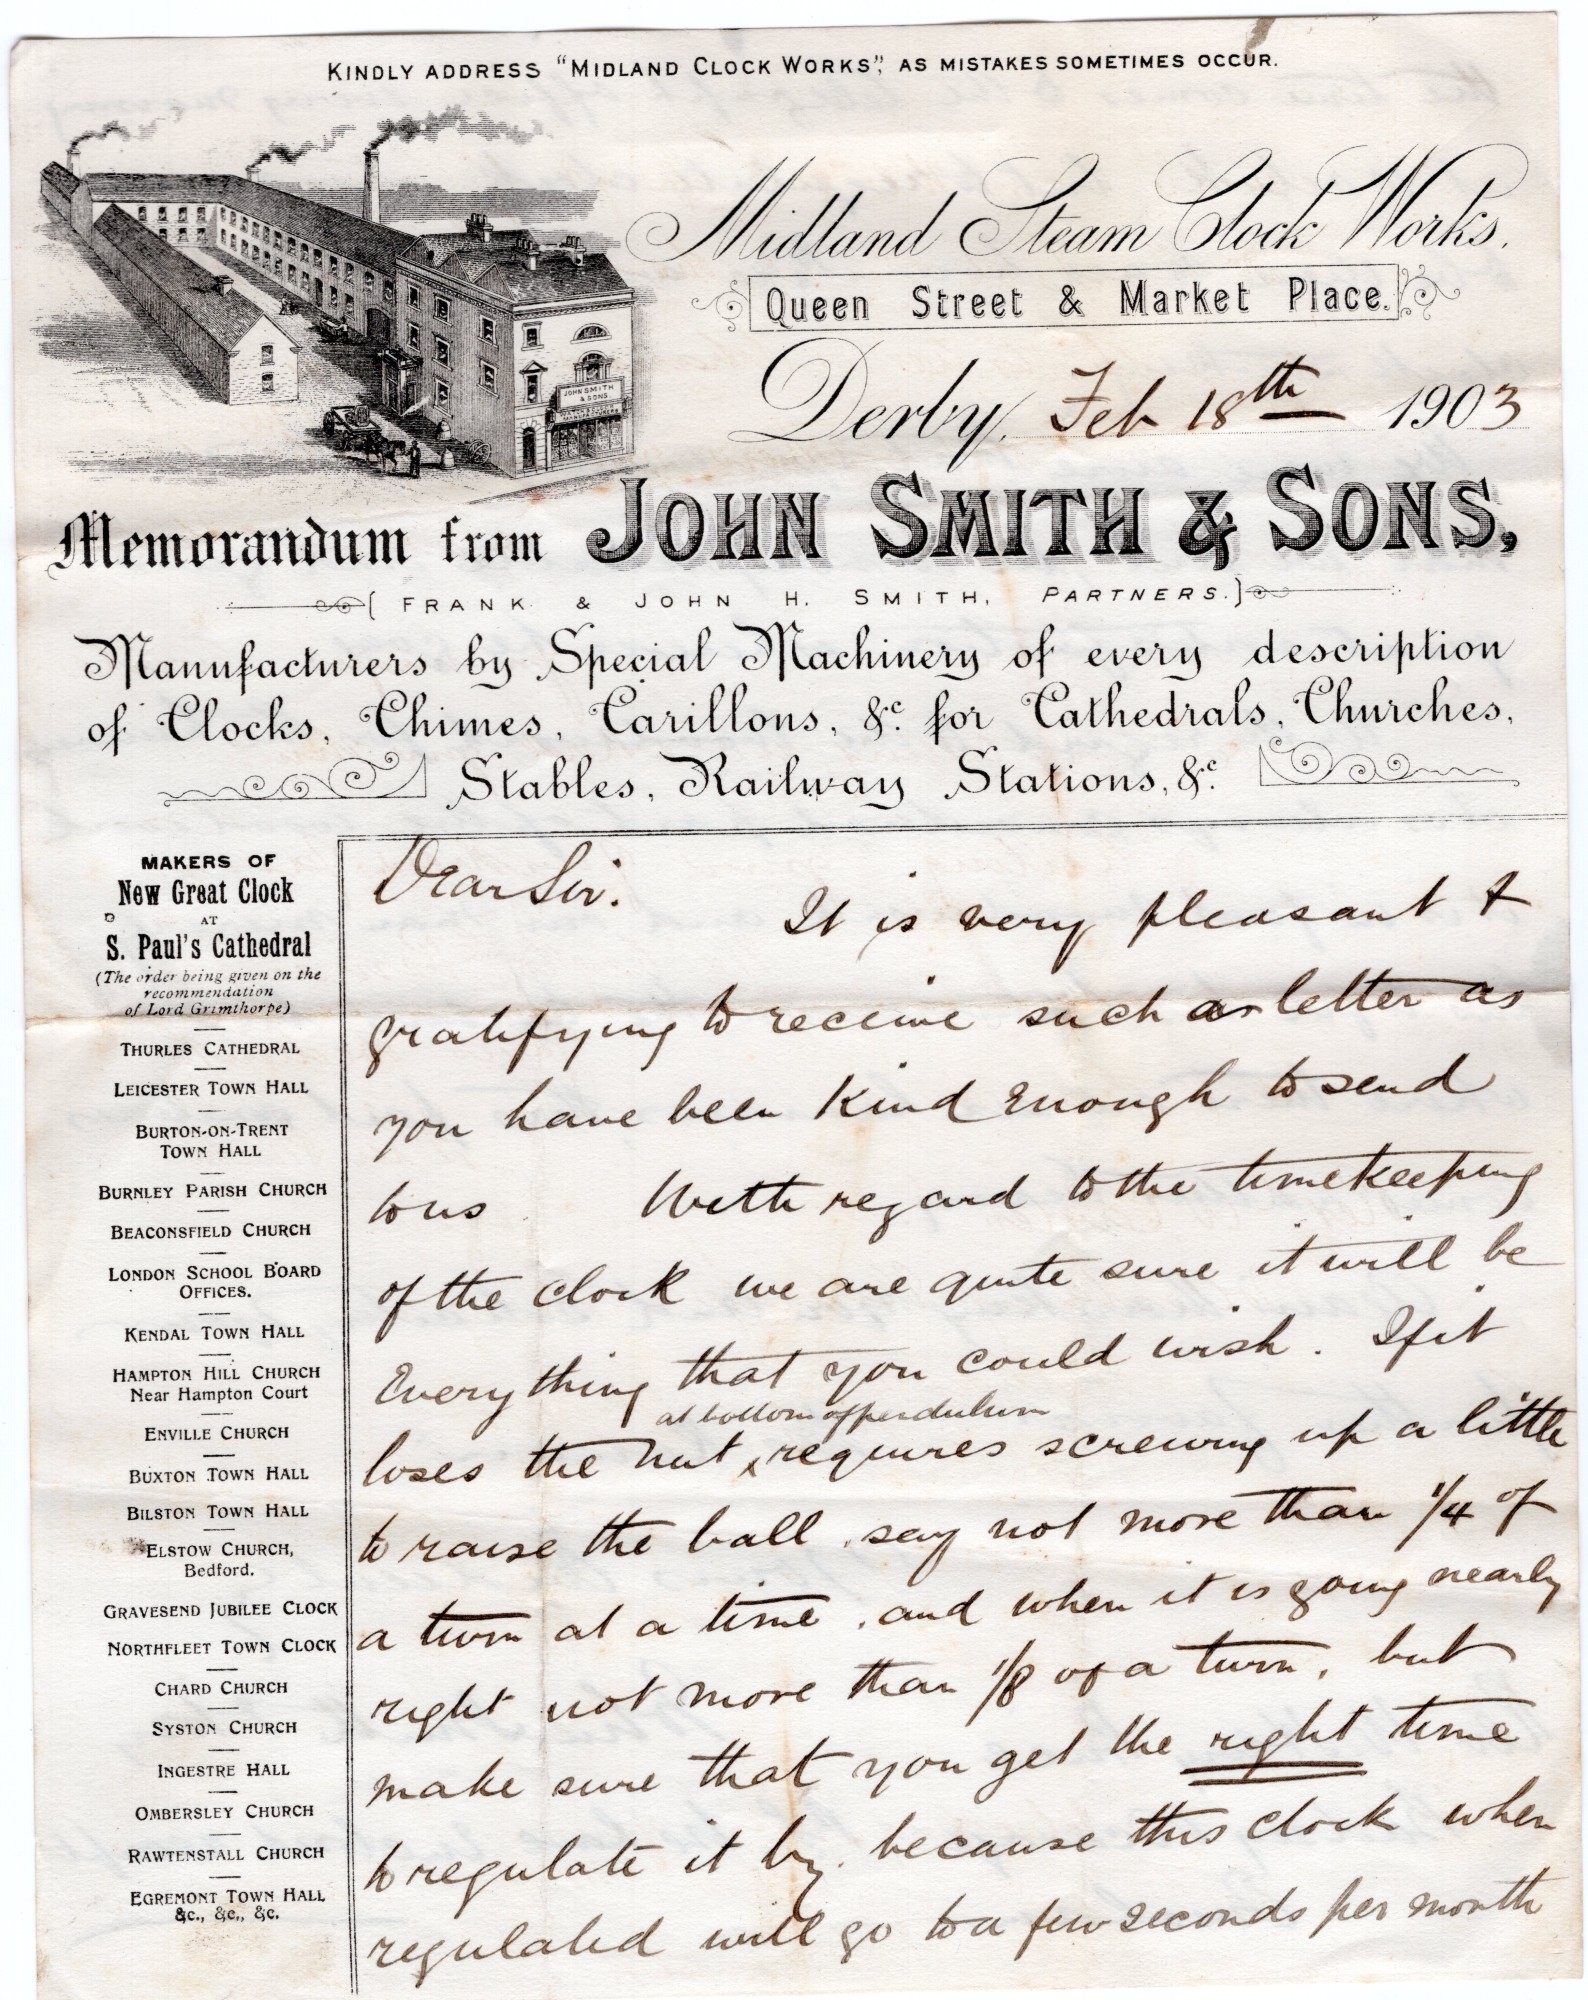 KINDLY ADDRESS "MIDLAND CLOCK WORKS", AS MISTAKES SOMETIMES OCCUR.
Midland Steam Clock Works.
Queen Street & Market Place.
Derby, Feb 18th 1903
JOHN SMITH & SONS
Memorandum from JOHN SMITH & SONS,
[FRANK & JOHN H. SMITH, PARTNERS.]
Manufacturers by Special Machinery of every description
of Clocks, Chimes, Carillons, &c. for Cathedrals, Churches,
Stables, Railway Stations, &c.
MAKERS OF
New Great Clock
AT
S. Paul's Cathedral
(The order being given on the
recommendation
of Lord Grimthorpe)
THURLES CATHEDRAL
LEICESTER TOWN HALL
BURTON-ON-TRENT
TOWN HALL
BURNLEY PARISH CHURCH
BEACONSFIELD CHURCH
LONDON SCHOOL BOARD
OFFICES.
KENDAL TOWN HALL
HAMPTON HILL CHURCH
Near Hampton Court
ENVILLE CHURCH
BUXTON TOWN HALL
BILSTON TOWN HALL
ELSTOW CHURCH,
Bedford.
GRAVESEND JUBILEE CLOCK
NORTHFLEET TOWN CLOCK
CHARD CHURCH
SYSTON CHURCH
INGESTRE HALL
OMBERSLEY CHURCH
RAWTENSTALL CHURCH
EGREMONT TOWN HALL
&c., &c., &c.
Dear Sir.
It is very pleasant &
gratifying to receive such a letter as
you have been kind enough to send
to us. With regard to the timekeeping
of the clock we are quite sure it will be
Everything that you could wish. If it
at bottom of pendulum
loses the nut requires screwing up a little
to raise the ball, say not more than 1/4 of
a turn at a time, and when it is going nearly
right not more than 1/8 of a turn, but
make sure that you get the right time
to regulate it by, because this clock when
regulated will go to a few seconds per month